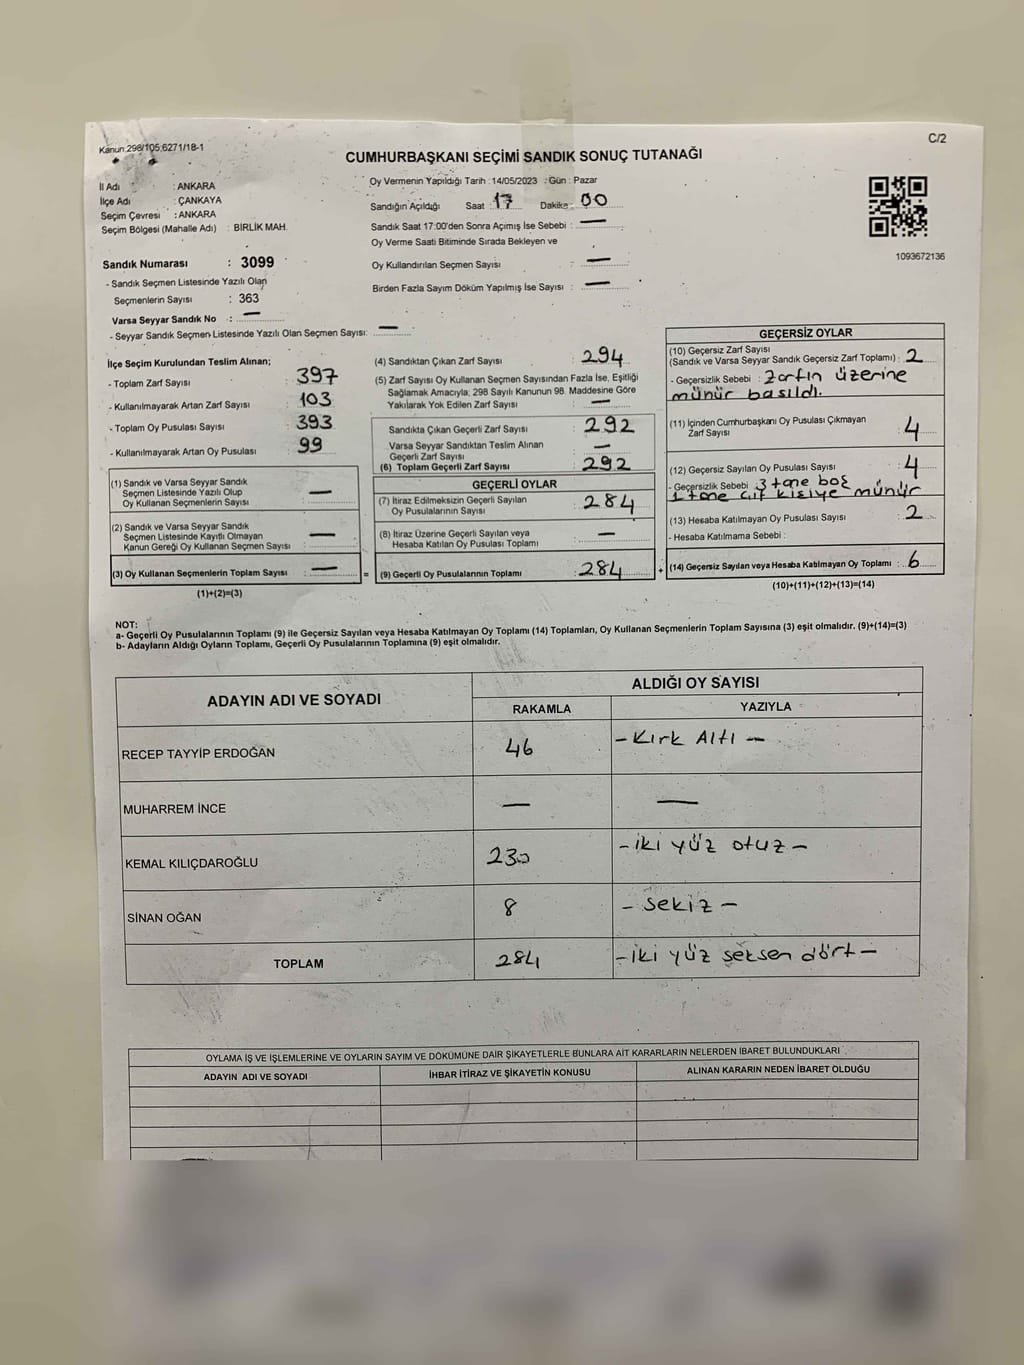 Kanun.298/105,6271/18-1
C/2
CUMHURBAŞKANI SEÇİMİ SANDIK SONUÇ TUTANAĞI
İl Adı : ANKARA
İlçe Adı : ÇANKAYA
Seçim Çevresi : ANKARA
Seçim Bölgesi (Mahalle Adı) : BİRLİK MAH.
Oy Vermenin Yapıldığı Tarih : 14/05/2023 Gün : Pazar
Sandığın Açıldığı Saat : 17 Dakika : 00
Sandık Saat 17:00'den Sonra Açımış İse Sebebi : —
Oy Verme Saati Bitiminde Sırada Bekleyen ve
Oy Kullandırılan Seçmen Sayısı : —
Birden Fazla Sayım Döküm Yapılmış İse Sayısı : —
1093672136
Sandık Numarası : 3099
- Sandık Seçmen Listesinde Yazılı Olan
Seçmenlerin Sayısı : 363
Varsa Seyyar Sandık No : —
- Seyyar Sandık Seçmen Listesinde Yazılı Olan Seçmen Sayısı: —
İlçe Seçim Kurulundan Teslim Alınan;
- Toplam Zarf Sayısı : 397
- Kullanılmayarak Artan Zarf Sayısı : 103
- Toplam Oy Pusulası Sayısı : 393
- Kullanılmayarak Artan Oy Pusulası : 99
(1) Sandık ve Varsa Seyyar Sandık
Seçmen Listesinde Yazılı Olup
Oy Kullanan Seçmenlerin Sayısı : —
(2) Sandık ve Varsa Seyyar Sandık
Seçmen Listesinde Kayıtlı Olmayan
Kanun Gereği Oy Kullanan Seçmen Sayısı : —
(3) Oy Kullanan Seçmenlerin Toplam Sayısı : —
(1)+(2)=(3)
=
(4) Sandıktan Çıkan Zarf Sayısı : 294
(5) Zarf Sayısı Oy Kullanan Seçmen Sayısından Fazla İse, Eşitliği
Sağlamak Amacıyla; 298 Sayılı Kanunun 98. Maddesine Göre
Yakılarak Yok Edilen Zarf Sayısı : —
Sandıkta Çıkan Geçerli Zarf Sayısı : 292
Varsa Seyyar Sandıktan Teslim Alınan
Geçerli Zarf Sayısı : —
(6) Toplam Geçerli Zarf Sayısı : 292
GEÇERLİ OYLAR
(7) İtiraz Edilmeksizin Geçerli Sayılan
Oy Pusulalarının Sayısı : 284
(8) İtiraz Üzerine Geçerli Sayılan veya
Hesaba Katılan Oy Pusulası Toplamı : —
(9) Geçerli Oy Pusulalarının Toplamı : 284
+
GEÇERSİZ OYLAR
(10) Geçersiz Zarf Sayısı
(Sandık ve Varsa Seyyar Sandık Geçersiz Zarf Toplamı) : 2
- Geçersizlik Sebebi : Zarfın üzerine
münür basıldı.
(11) İçinden Cumhurbaşkanı Oy Pusulası Çıkmayan
Zarf Sayısı : 4
(12) Geçersiz Sayılan Oy Pusulası Sayısı : 4
- Geçersizlik Sebebi : 3 tane boş
1 tane çift kişiye münür
(13) Hesaba Katılmayan Oy Pusulası Sayısı : 2
- Hesaba Katılmama Sebebi :
(14) Geçersiz Sayılan veya Hesaba Katılmayan Oy Toplamı : 6
(10)+(11)+(12)+(13)=(14)
NOT:
a- Geçerli Oy Pusulalarının Toplamı (9) ile Geçersiz Sayılan veya Hesaba Katılmayan Oy Toplamı (14) Toplamları, Oy Kullanan Seçmenlerin Toplam Sayısına (3) eşit olmalıdır. (9)+(14)=(3)
b- Adayların Aldığı Oyların Toplamı, Geçerli Oy Pusulalarının Toplamına (9) eşit olmalıdır.
ADAYIN ADI VE SOYADI
ALDIĞI OY SAYISI
RAKAMLA YAZIYLA
RECEP TAYYİP ERDOĞAN 46 - Kırk Altı —
MUHARREM İNCE — —
KEMAL KILIÇDAROĞLU 230 - iki yüz otuz -
SİNAN OĞAN 8 - sekiz -
TOPLAM 284 - iki yüz seksen dört -
OYLAMA İŞ VE İŞLEMLERİNE VE OYLARIN SAYIM VE DÖKÜMÜNE DAİR ŞİKAYETLERLE BUNLARA AİT KARARLARIN NELERDEN İBARET BULUNDUKLARI
ADAYIN ADI VE SOYADI İHBAR İTİRAZ VE ŞİKAYETİN KONUSU ALINAN KARARIN NEDEN İBARET OLDUĞU